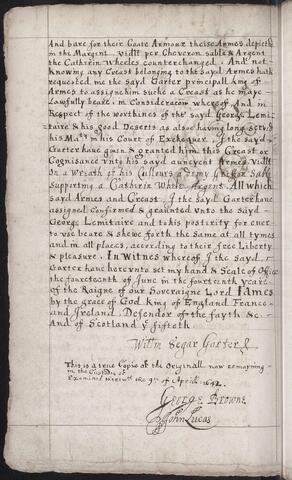 And bare for their Coate Armour theise Armes depicted
in the Margent vidlt per Cheveron sable & Argent
the Cathrin Wheeles counterchanged. And not
knowing any Creast belonging to the sayd Armes hath
requested me the sayd Garter principall king of
Armes to assigne him such a Creast as he maye
Lawfully beare. in Consideracon whereof And in
Respect of the worthines of the sayd George Lemi-
taire & his good Deserts as alsoe having long served
his Matie in his Court of Exchequer. I the sayd
Garter have given & granted him this Creast or
Cognisance unto his sayd auncyent Armes vidlt
On a Wreath of his Cullours a Demy Griffon Sable
Supporting a Cathrin Wheele Argent. All which
sayd Armes and Creast, I the sayd Garter have
assigned confirmed & graunted unto the sayd
George Lemitaire and to his posterity for ever
to use beare & shewe forth the same at all tymes
and in all places, according to their free Liberty
& pleasure. In Witnes whereof I the sayd
Garter have hereunto set my hand & Seale of Office
the fourteenth of June in the fourteenth yeare
of the Raigne of our Soveraigne Lord James
by the grace of God king of England France
and Ireland, Defendor of the fayth &c
And of Scotland ye fiftieth
Willm Segar Garter
This is a true Copie of the Originall now remayning
in the Custodie of
Examined the 9th of Aprill 1642
George Browne
John Lucas